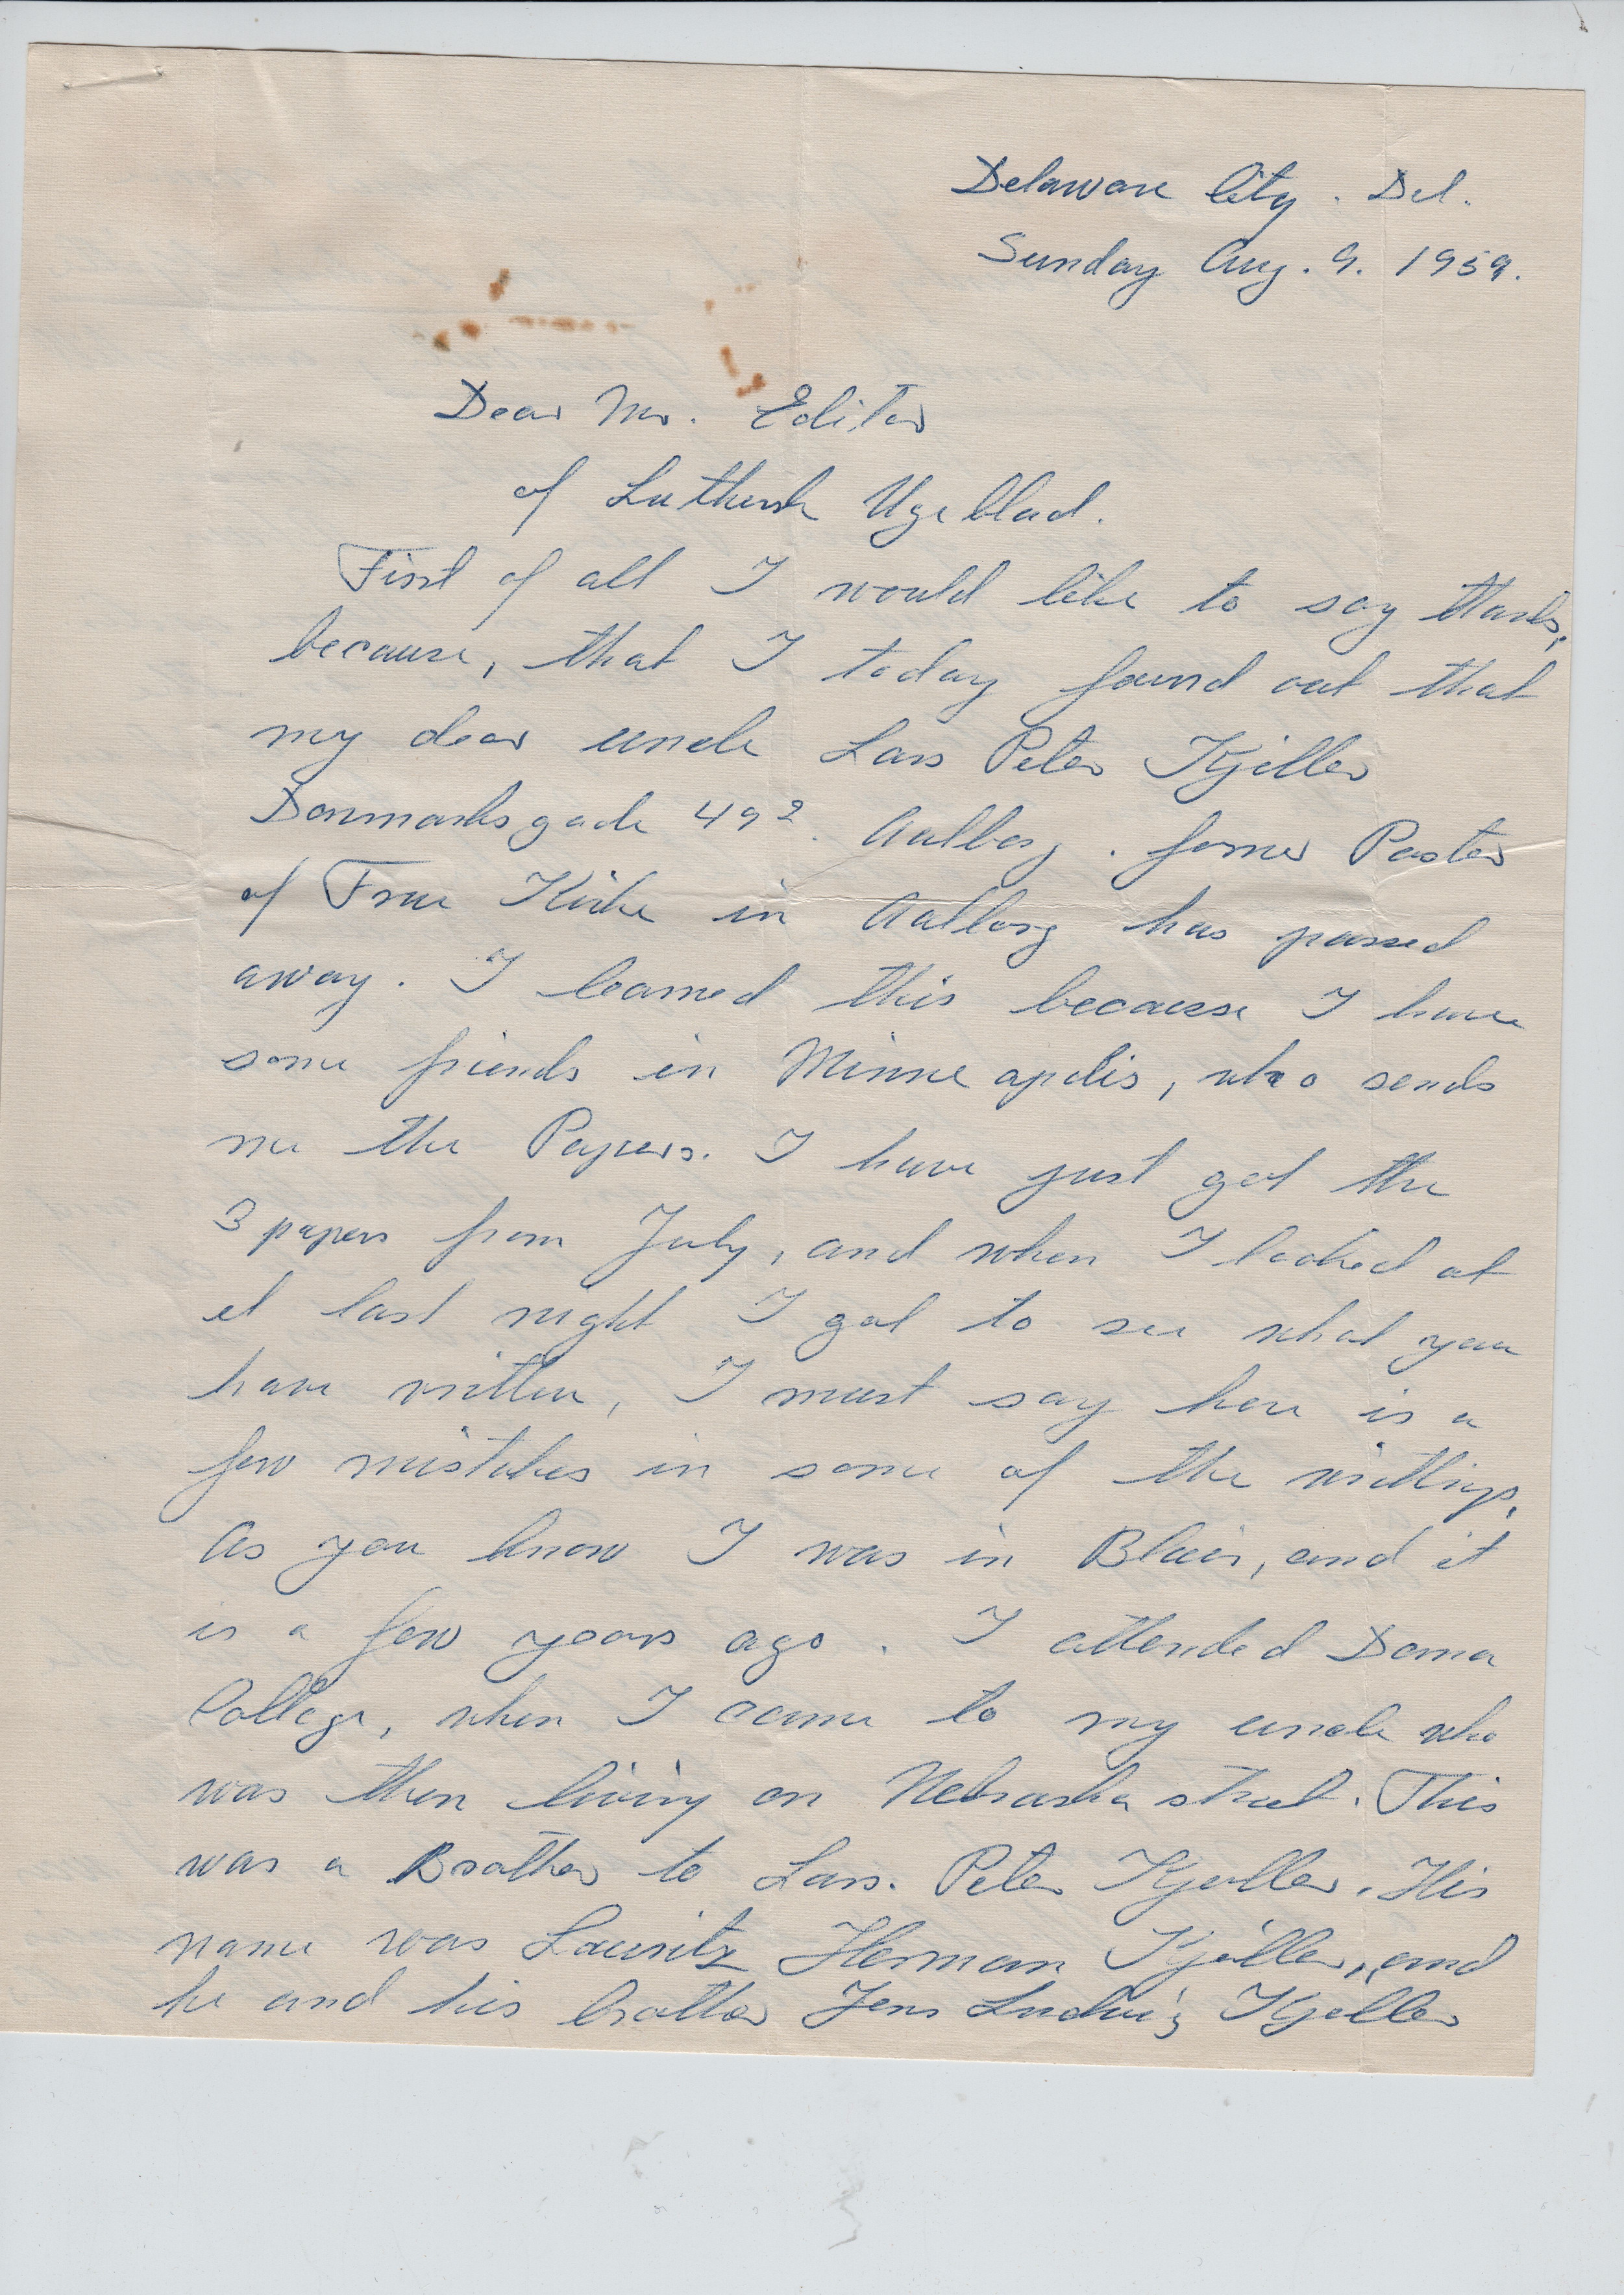 Delaware City. Del.
Sunday Aug. 9. 1959.
Dear Mr. Editor
of Luthersk Ugeblad.
First of all I would like to say thanks,
because, that I today found out that
my dear uncle Lars Peter Kjøller
Danmarksgade 49². Aalborg. former Pastor
of Frue Kirke in Aalborg has passed
away. I learned this because I have
some friends in Minneapolis, who sends
me the Papers. I have just got the
3 papers from July, and when I looked at
it last night I got to see what you
have written, I must say here is a
few mistakes in some of the writtings.
As you know I was in Blair, and it
is a few years ago. I attended Dana
College, when I came to my uncle who
was then living on Nebraska street. This
was a Brother to Lars. Peter Kjøller. His
name was Lauritz Herman Kjøller, and
he and his brother Jens Ludvig Kjøller